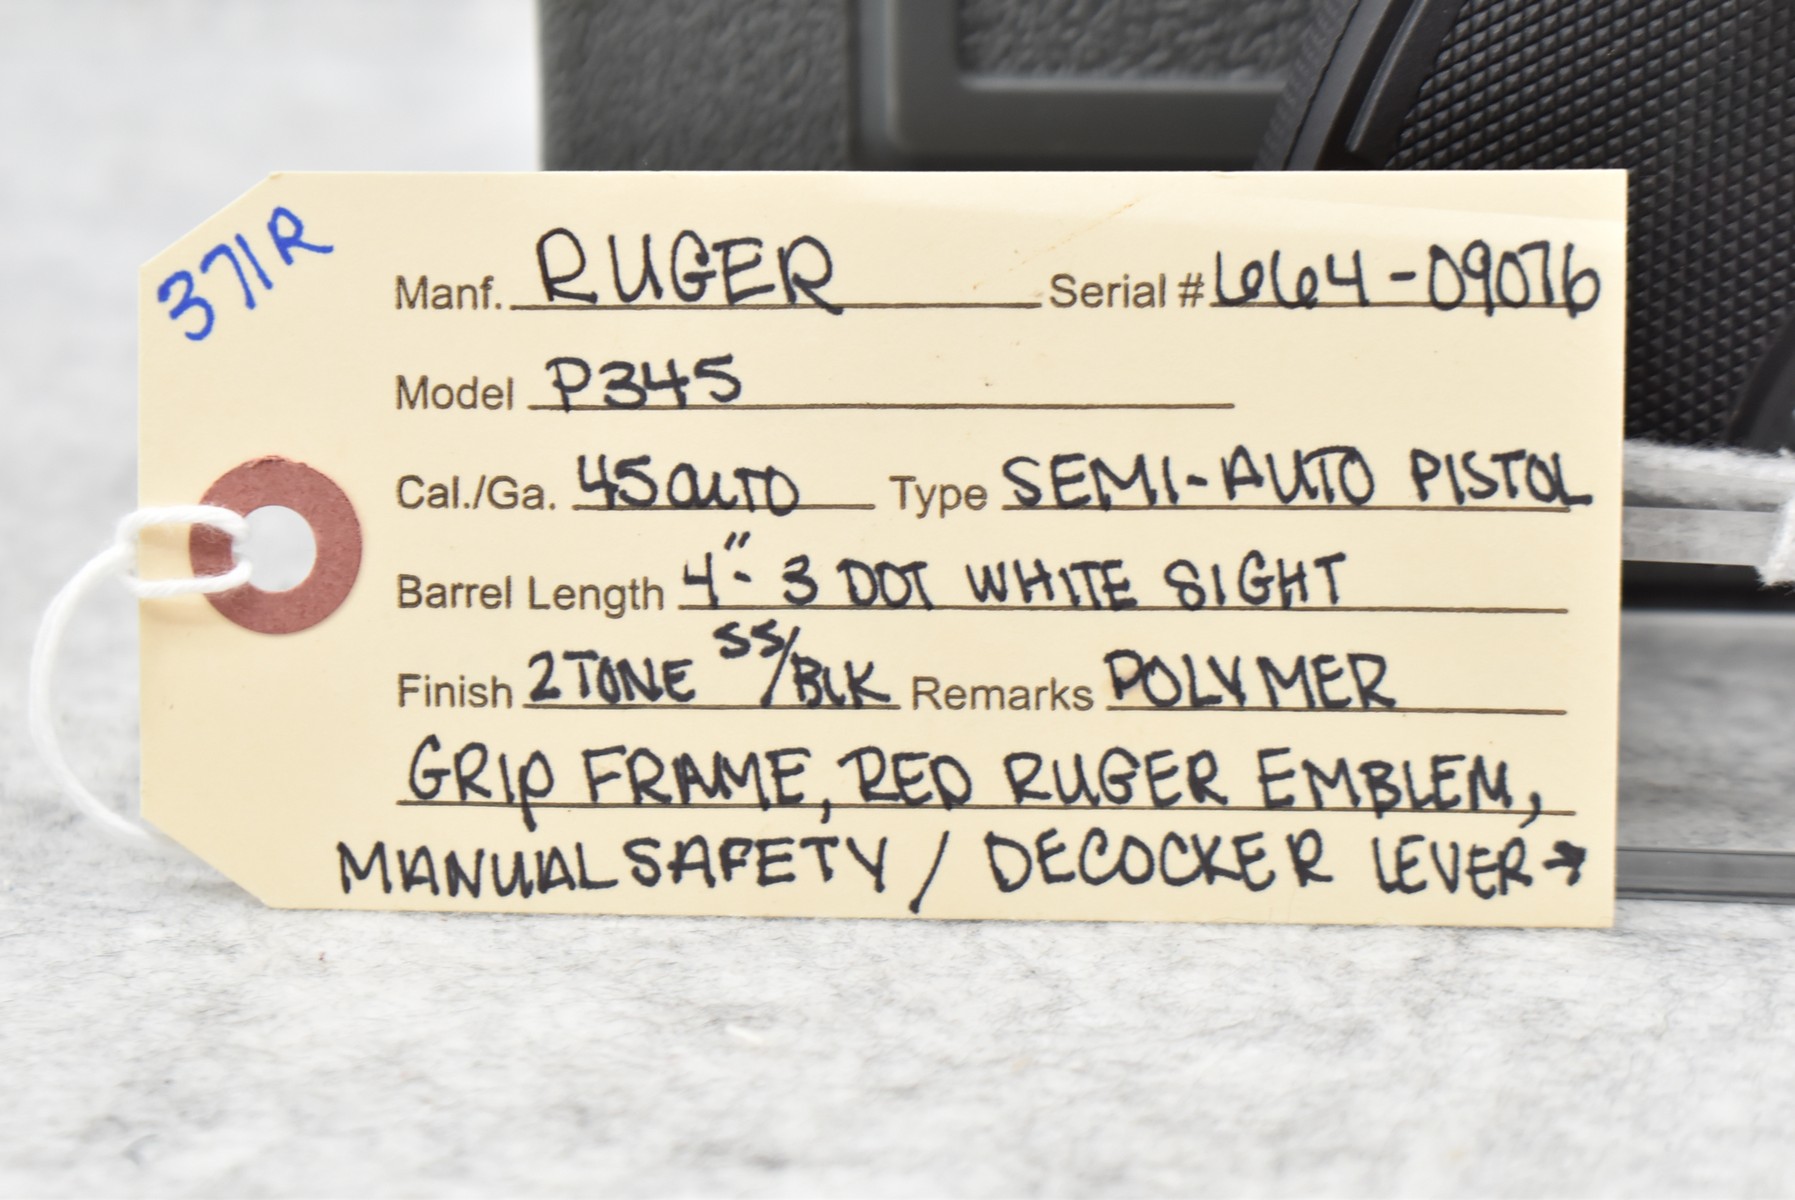 371R
Manf. RUGER Serial # 664-09076
Model P345
Cal./Ga. 45 auto Type SEMI-AUTO PISTOL
Barrel Length 4"- 3 DOT WHITE SIGHT
Finish 2 TONE SS/BLK Remarks POLYMER
GRIP FRAME, RED RUGER EMBLEM,
MANUAL SAFETY / DECOCKER LEVER→